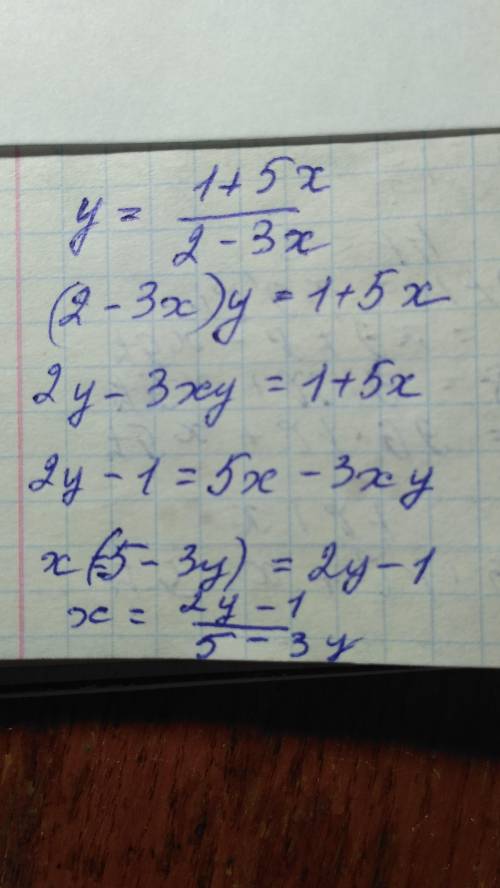 y = (1+5x)/(2-3x)
(2-3x)y = 1+5x
2y-3xy = 1+5x
2y-1 = 5x-3xy
x(5-3y) = 2y-1
x = (2y-1)/(5-3y)